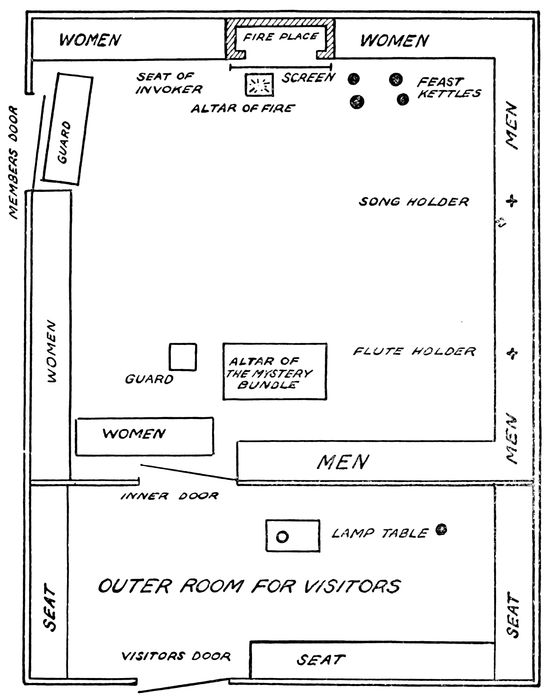 WOMEN
FIRE PLACE
WOMEN
SEAT OF
INVOKER
SCREEN
FEAST
KETTLES
ALTAR OF FIRE
MEMBERS DOOR
GUARD
MEN
SONG HOLDER
WOMEN
FLUTE HOLDER
ALTAR OF
THE MYSTERY
BUNDLE
GUARD
WOMEN
MEN
MEN
INNER DOOR
LAMP TABLE
OUTER ROOM FOR VISITORS
SEAT
SEAT
VISITORS DOOR
SEAT